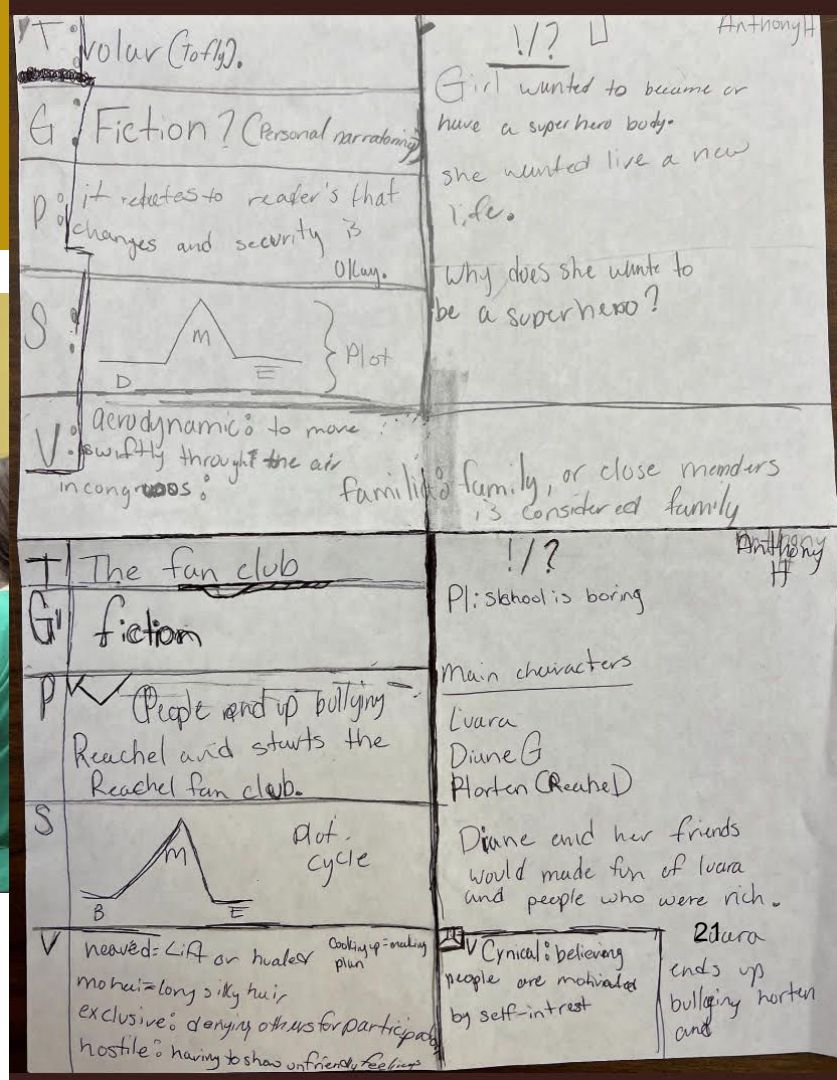 T: Volar (to fly).
G: Fiction? (Personal narratoring)
P: it relates to reader's that
changes and security is
Okay.
S:
M
D
E
Plot
V: aerodynamic: to move
swiftly through the air
incongruous:
familia: family, or close menders
is considered family
!/?
Anthony H
Girl wanted to became or
have a superhero body.
she wanted live a new
life.
Why does she wante to
be a superhero?
T The fan club
G fiction
P (People end up bullying
Reachel and starts the
Reachel fan club.
S
M
B
E
Plot
cycle
V heaved= Lift or
Cooking up=making
plan
mohair=long silky hair
exclusive: denying others for
hostile: having to show unfriendly feelings
!/?
Anthony
H
P1: school is boring
Main characters
Luara
Diane G
Horten (Reachel)
Diane and her friends
would made fun of luara
and people who were rich.
V Cynical: believing
people are motivated
by self-intrest
luara
ends up
bullying horten
and